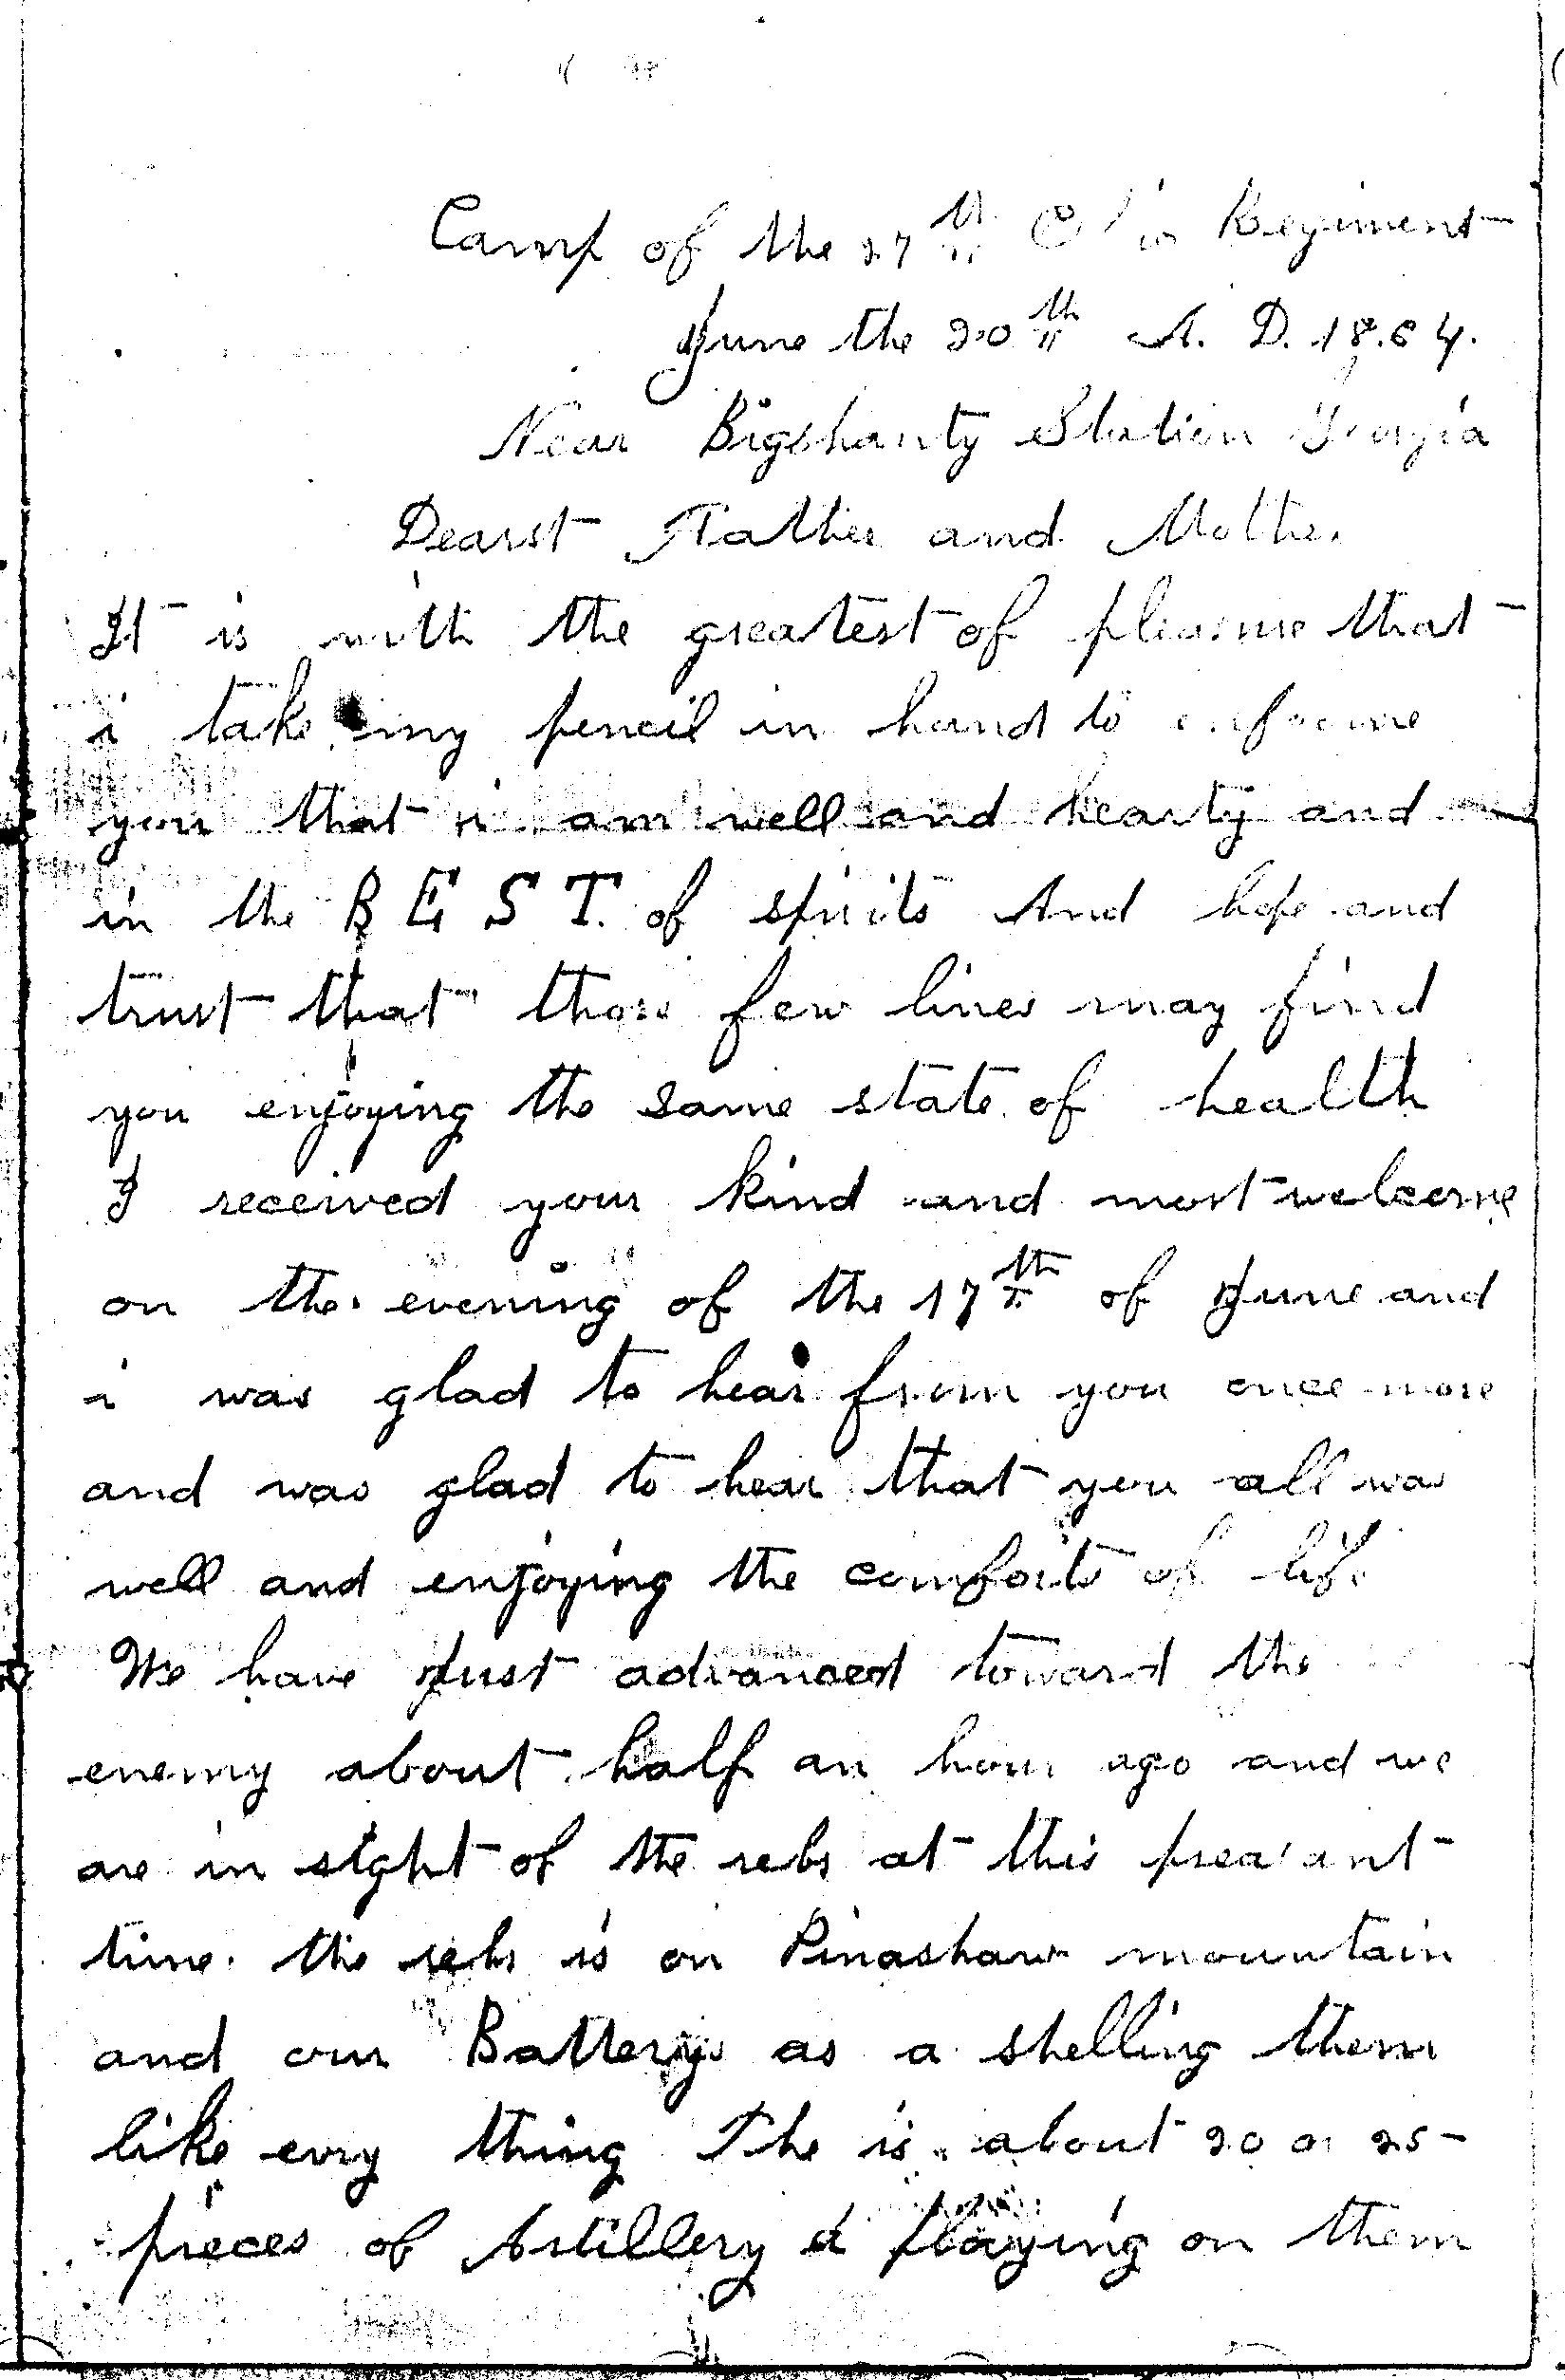 Camp of the 27th Ohio Regiment
June the 20th A. D. 1864.
Near Bigshanty Station Georgia
Dearst Father and Mother
It is with the greatest of pleasure that
i take my pencil in hand to enforme
you that i am well and hearty and
in the BEST. of spirits And hope and
trust that those few lines may find
you enjoying the same state of health
I received your kind and most welcome
on the evening of the 17th of June and
i was glad to hear from you once more
and was glad to hear that you all was
well and enjoying the comforts of life
We have just advanced toward the
enemy about half an hour ago and we
are in sight of the rebs at this preasant
time. the rebs is on Pinashaw mountain
and our Batterys as a shelling them
like evry thing The is about 20 or 25
pieces of Artillery a playing on them